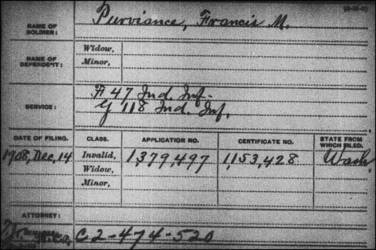 NAME OF SOLDIER: Purviance, Francis M.
NAME OF DEPENDENT: Widow,
Minor,
SERVICE: H 47 Ind. Inf.
G 118 Ind. Inf.
DATE OF FILING. CLASS. APPLICATION NO. CERTIFICATE NO. STATE FROM WHICH FILED.
1908, Dec, 14 Invalid, 1,379,497 1,153,428 Wash.
Widow,
Minor,
ATTORNEY:
C-2-474-520